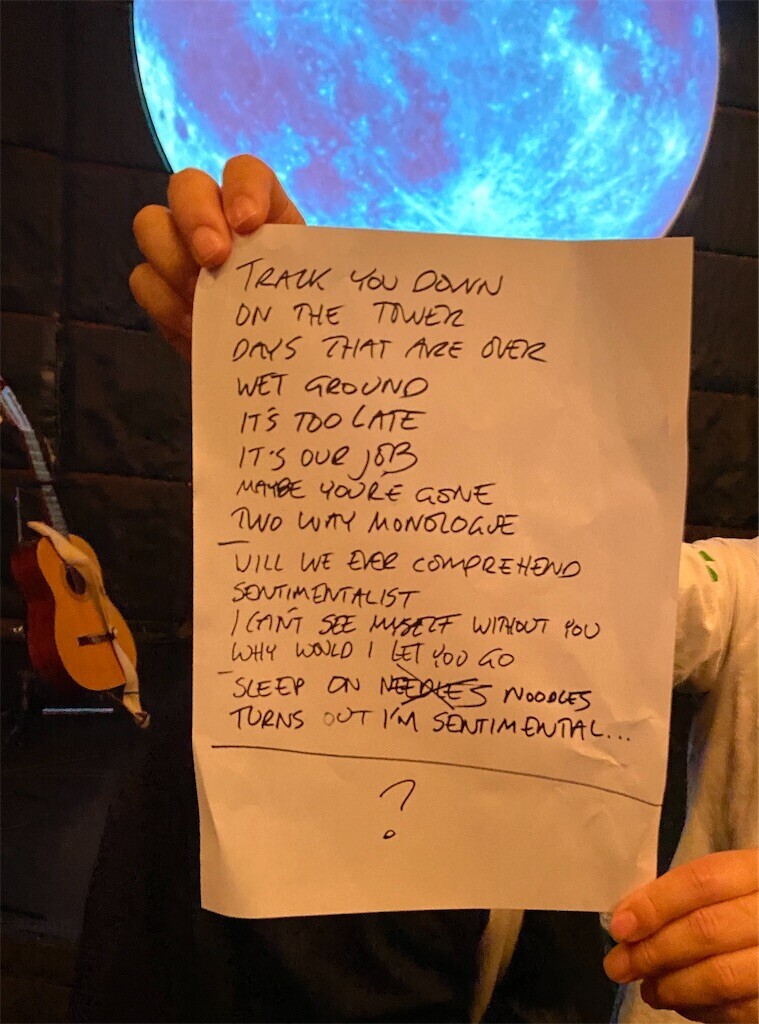 TRACK YOU DOWN
ON THE TOWER
DAYS THAT ARE OVER
WET GROUND
IT'S TOO LATE
IT'S OUR JOB
MAYBE YOU'RE GONE
TWO WAY MONOLOGUE
WILL WE EVER COMPREHEND
SENTIMENTALIST
I CAN'T SEE MYSELF WITHOUT YOU
WHY WOULD I LET YOU GO
SLEEP ON NEEDLES NOODLES
TURNS OUT I'M SENTIMENTAL...
?